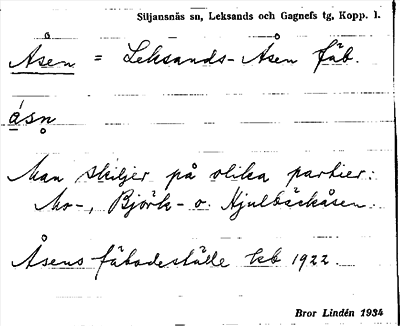 Siljansnäs sn, Leksands och Gagnefs tg, Kopp. l.
Åsen = Leksands-Åsen fäb.
åsn̥
Man skiljer på olika partier:
Mo-, Björk- o. Hjulbäcksåsen.
Åsens fäbodeställe kb 1922.
Bror Lindén 1934